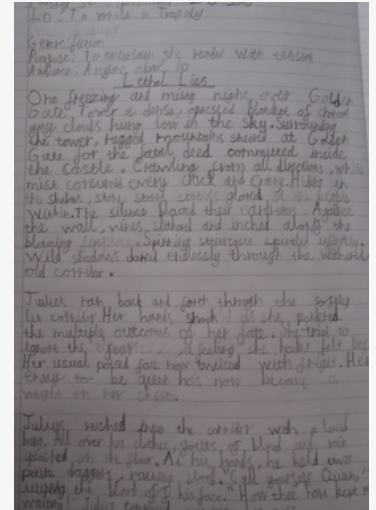 LO: To write a Tragedy
Genre: fiction
Purpose: To entertain the reader with tension
Audience: Anyone above 10
Lethal Lies
One freezing and misty night over Golden
Gate Tower a dense, opressed blanket of
grey clouds hung low in the sky. Surrounding
the tower, ragged mountains sneered at Golden
Gate for the fatal deed committed inside
the castle. Crawling from all directions, white
mist consumed every crack and cranny. Hiding in
the shadows, stone statues glared at the people
within. The silence blasted their eardrums. Against
the wall, vines slithered and inched along the
blazing fireplace. Spinning staircases spiraled infinitely.
Wild shadows danced endlessly through the withered
old corridor.
Julies ran back and forth through the softly
lit corridor. Her hands shook as she pondered
the multiple outcomes of her fate. She tried to
ignore the fear a feeling she hadnt felt
Her usual posed face now twisted with fright. Her
to be queen has now become a
weight on her chest.
Julius, rushed into the corridor with a loud
bang. All over his clothes, gouts of blood and
on the floor. As his hands, he held two
daggers, blood. "Call yourself Queen,"
the blood of his face. "How thee have kept
waiting"